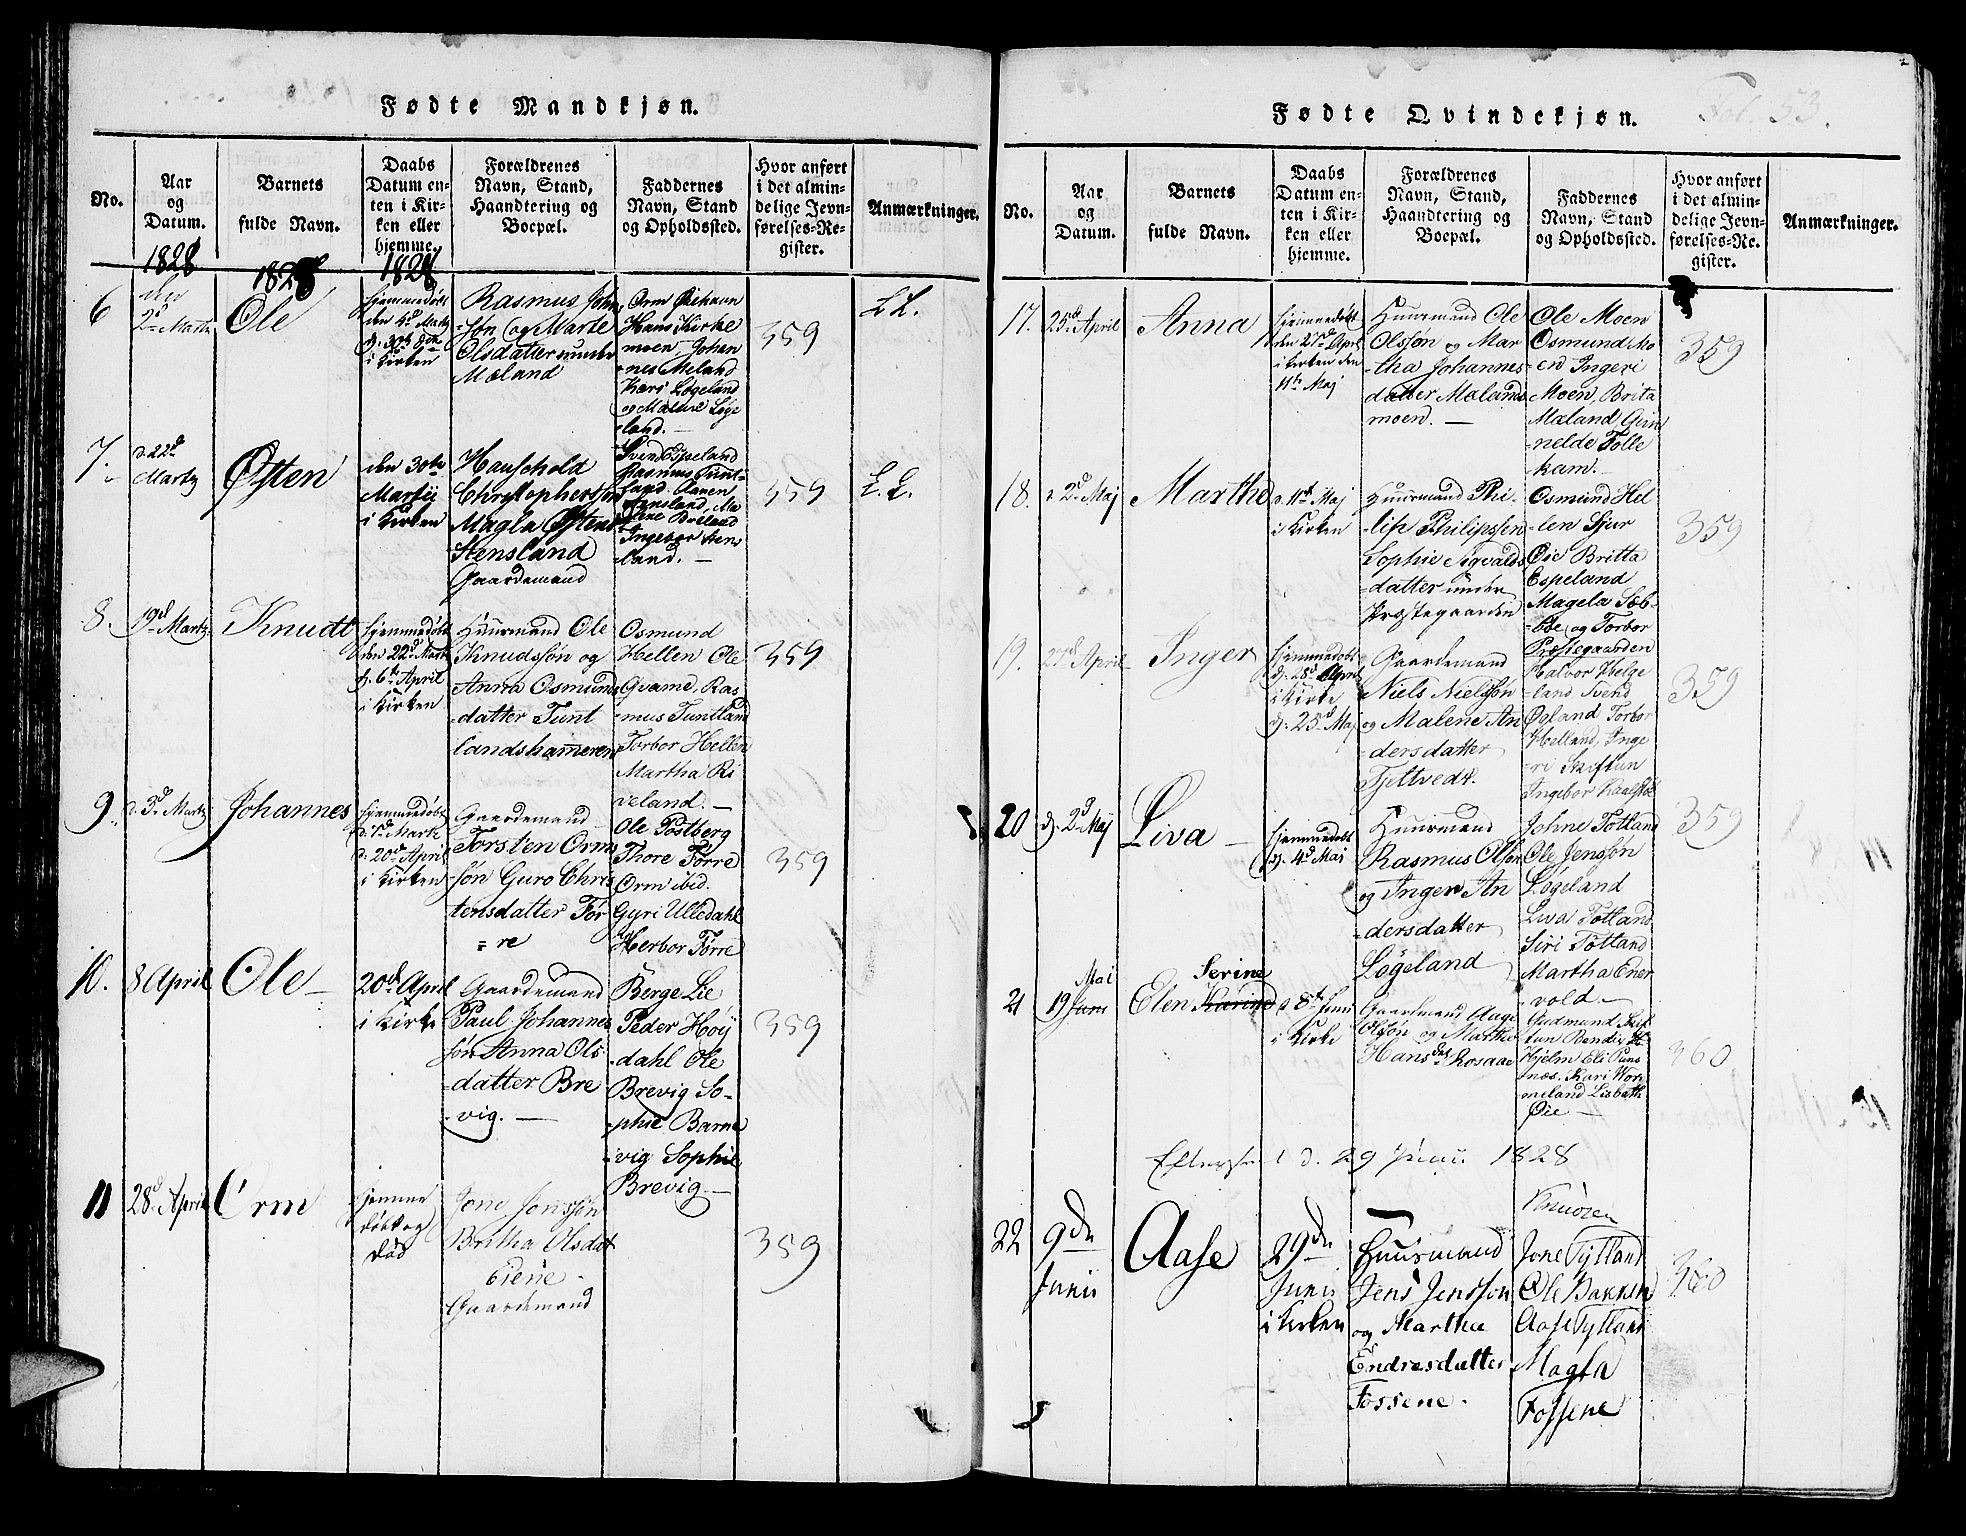 Fødte Mandkjøn.
No.
Aar
og
Datum.
Barnets
fulde Navn.
Daabs
Datum en-
ten i Kir-
ken eller
hjemme.
Forældrenes
Navn, Stand,
Haandtering og
Boepæl.
Faddernes
Navn, Stand
og Opholdssted.
Hvor anført
i det almin-
delige Jevn-
førelses-Re-
gister.
Anmærkninger.
1828
1828
1828
6
den
2d Martz
Ole
hjemmedøbt
den 4d Martz
i Kirken
Rasmus John
-søn og Marte
Olsdatter under
Mæland
Orm
Hans Kirke
moen Johan
-nes Meland
Kari Løgeland
og Malene Løge
land. -
359
L L.
7.
d. 22d
Martz
Østen
den 30te
Martii
i Kirken
Hauschold
Christophersen
Magla Østens
Stensland
Gaardemand
Svend Espeland
Rasmus Tunt-
land
Ingebor Stens
-land. -
359
L. L.
8.
19d Martz
Knudt
hjemmedøbt
den 22d Martz
d. 6te April
i Kirken
Huusmand Ole
Knudssøn og
Anna Osmunds
-datter Tunt
landshameren
Osmund
Hellen Ole
Gvame, Ras
-mus Tuntland
Torbor Hellen
Martha Ri
veland. -
359
9.
d. 5d Martz
Johannes
hjemmedøbt
d. 7d Martz
d. 20d April
i Kirken
Gaardemand
Torsten Orm
søn Guro Chris
tensdatter Før
=re
Ole Postberg
Thore Førre
Orm ibid.
Gyri Ulledahl
Herbor Førre
359
10.
8 April
Ole -
20d April
i Kirke
Gaardemand
Paul Johannes
søn Anna Ols
-datter Bre
-vig. -
Berge Lie
Peder Høÿ
-dahl Ole
Brevig So-
-phie Barne
-vig Sophie
Brevig. -
359
11
28d April
Orm
hjemme
døbt og
død
Jone Jonssøn
Britha Olsdat
Eiene -
Gaardemand
359
Fødte Qvindekjøn.
Fol. 53.
No.
Aar
og
Datum.
Barnets
fulde Navn.
Daabs
Datum en-
ten i Kir-
ken eller
hjemme.
Forældrenes
Navn, Stand,
Haandtering og
Boepæl.
Faddernes
Navn, Stand
og Opholdssted.
Hvor anført
i det almin-
delige Jevn-
førelses-Re-
gister.
Anmærkninger.
17.
25d April
Anna
hjemmedøbt
den 27d April
i Kirken den
11te Maj
Huusmand Ole
Olssøn og Mar
-tha Johannes
datter Mælands
moen. -
Ole Moen
Osmund Mo
en Ingeri
Moen, Brita
Mæland, Gun
nelde Tolle
kam. -
359
18.
d. 2d Maj
Marthe
d. 11te Maj
i Kirken
Huusmand Phi-
-lip Philipssen
Sophie Sigvalds
-datter under
Præstegaarden
Osmund Hel-
-len Sjur
Øie Britta
Espeland
Magela Sæb-
-bøe og Torbor
Præstegaarden
359
19.
27d April
Inger
hjemmedøbt
d. 28d April
i Kirke
d. 25d Maj
Gaardemand
Niels Nielssøn
og Malene An
-dersdatter
Tjeltvedt.
Halvor Helge
land Svend
Øgland Torbor
Helland, Inge
-ri Skiftun
Ingebor
359
20
d. 2d Maj
Liva -
hjemmedøbt
d. 4d Maj
Huusmand
Rasmus Olsøn
og Inger An
-dersdatter
Løgeland
Johne Totland
Ole Jenssøn
Løgeland
Liva Totland
Siri Totland
Martha Ener
vold -
359
21
Mai
19 Juni
Serine
Elen Karine
d 8te Juni
i Kirke
Gaardmand Aage
Olssøn og Martha
Hansdtr Rosaae
Gudmund Skif
tun Bendix
Hjelm Eli Puns
næs. Kari Wor
meland Lisbeth
Øie -
360
Efterseet d. 29 Juni. 1828
Knudzen
22
9de
Junii
Aase
29de
Junii
i Kirken
Huusmand
Jens Jenssøn
og Martha
Endresdatter
Fossene.
Jone Tytland
Ole Bakken
Aase Tytland
Magla
Fossene
360